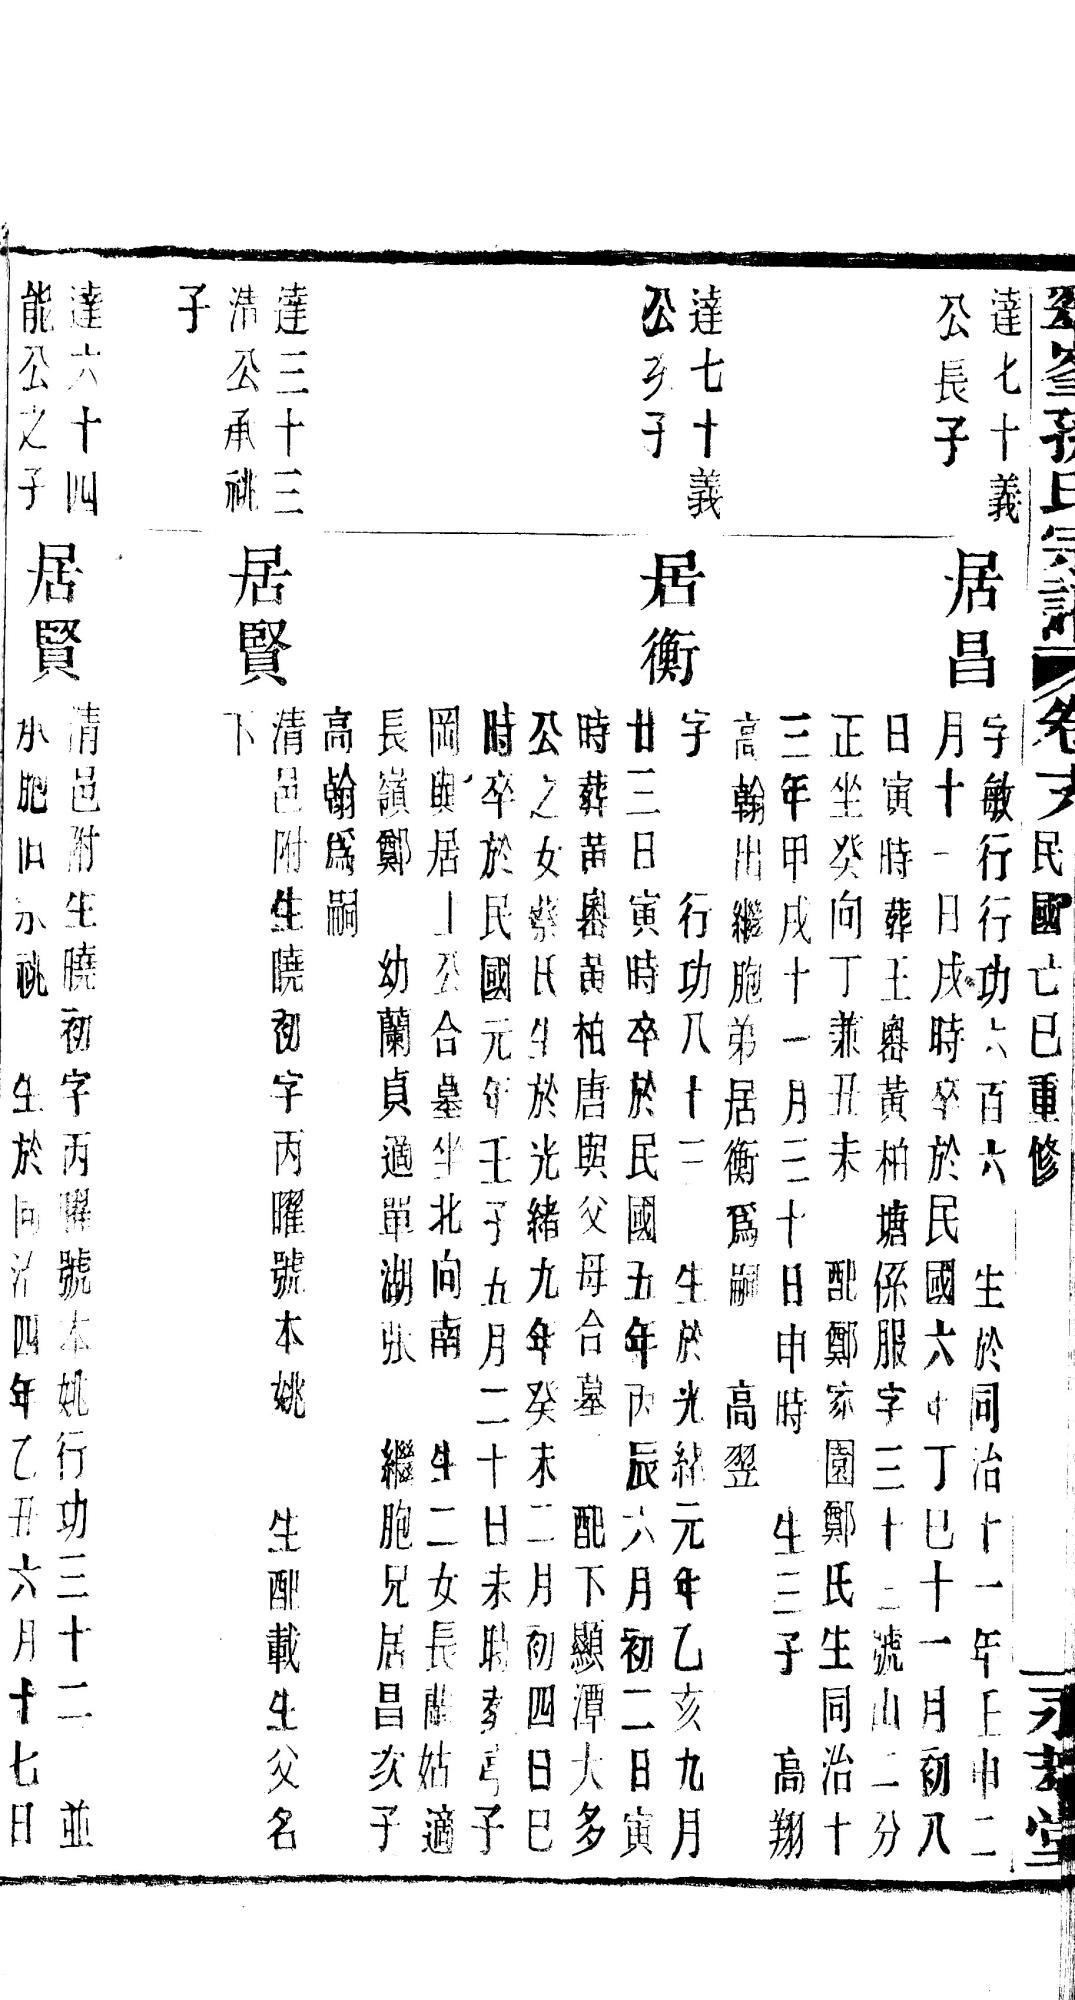 孫氏宗譜 卷 民國己巳重修
達七十義
公長子
居昌
字敏行行功六百六 生於同治十一年壬申二
月十一日戌時卒於民國六年丁巳十一月初八
日寅時葬王嶴黃柏塘係服字三十二號山二分
正坐癸向丁兼丑未 配鄭家園鄭氏生同治十
三年甲戌十一月三十日申時 生三子 高翔
高翰出繼胞弟居衡爲嗣 高翌
達七十義
公次子
居衡
字 行功八十二 生於光緒元年乙亥九月
廿三日寅時卒於民國五年丙辰六月初二日寅
時葬黃嶴黃柏唐與父母合墓 配下顯潭大多
公之女蔡氏生於光緒九年癸未二月初四日巳
時卒於民國元年壬子五月二十日未時 子
岡與居上公合墓坐北向南 生二女長蘭姑適
長嶺鄭 幼蘭貞適單湖張 繼胞兄居昌次子
高翰爲嗣
達三十三
清公承祧
子
居賢
清邑附生曉初字丙曜號本姚 生配載生父名
下
達六十四
能公之子
居賢
清邑附生曉初字丙曜號本姚行功三十二 並
祧 生於同治四年乙丑六月十七日
堂